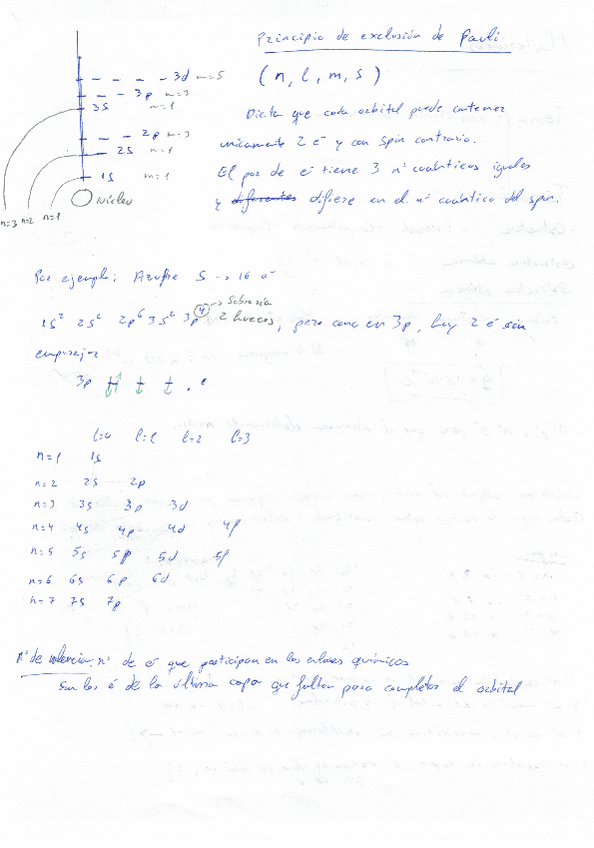 Principio de exclusión de Pauli
(n, l, m, s)
Dicta que cada orbital puede contener
unicamente 2 e⁻ y con spin contrario.
El par de e⁻ tiene 3 nº cuánticos iguales
y diferentes difiere en el nº cuántico del spin.
3d m=5
3p m=3
3s m=1
2p m=3
2s m=1
1s m=1
Núcleo
n=3 n=2 n=1
Por ejemplo: Azufre S → 16 e⁻
1s² 2s² 2p⁶ 3s² 3p⁴ → Sobraría
2 huecos, pero como en 3p, hay 2 e⁻ sin
emparejar
3p
l=0 l=1 l=2 l=3
n=1 1s
n=2 2s 2p
n=3 3s 3p 3d
n=4 4s 4p 4d 4f
n=5 5s 5p 5d 5f
n=6 6s 6p 6d
n=7 7s 7p
Nº de valencia: nº de e⁻ que participan en los enlaces químicos
Son los e⁻ de la última capa que faltan para completar el orbital